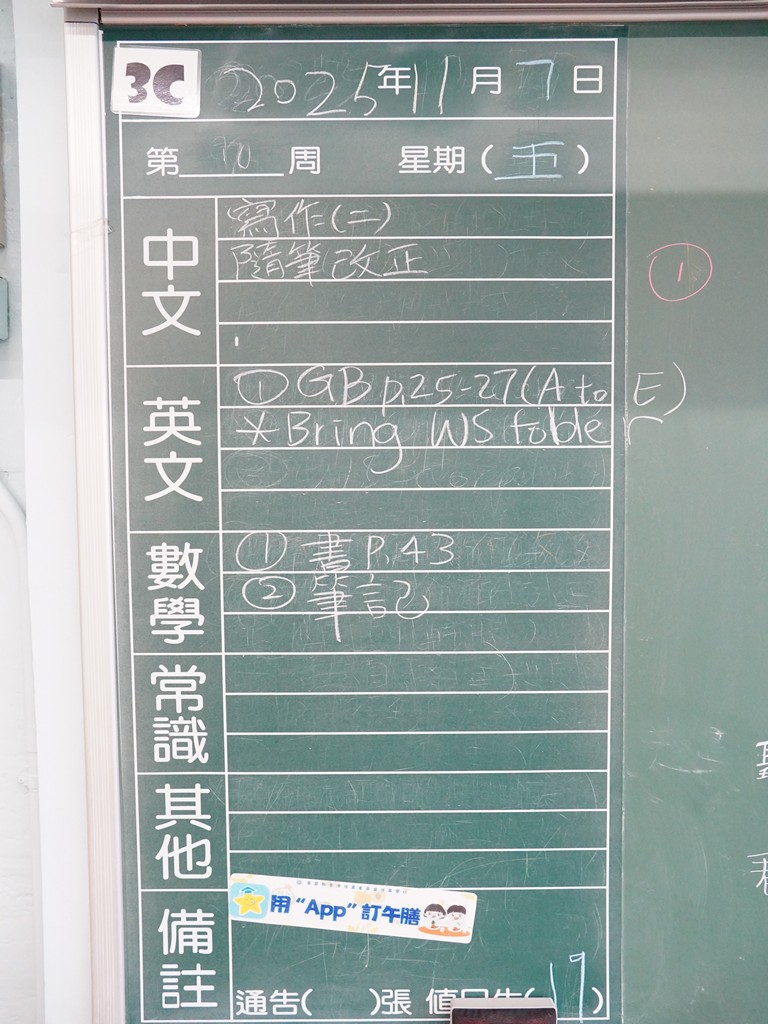 3C 2025年11月7日
第 周 星期(五)
中文
寫作(二)
隨筆改正
①
英文
① GB p.25-27(A to E)
* Bring WS folder
數學
① 書 P.43
② 筆記
常識
其他
備註
用 “App” 訂午膳
通告( )張 值日生(19)